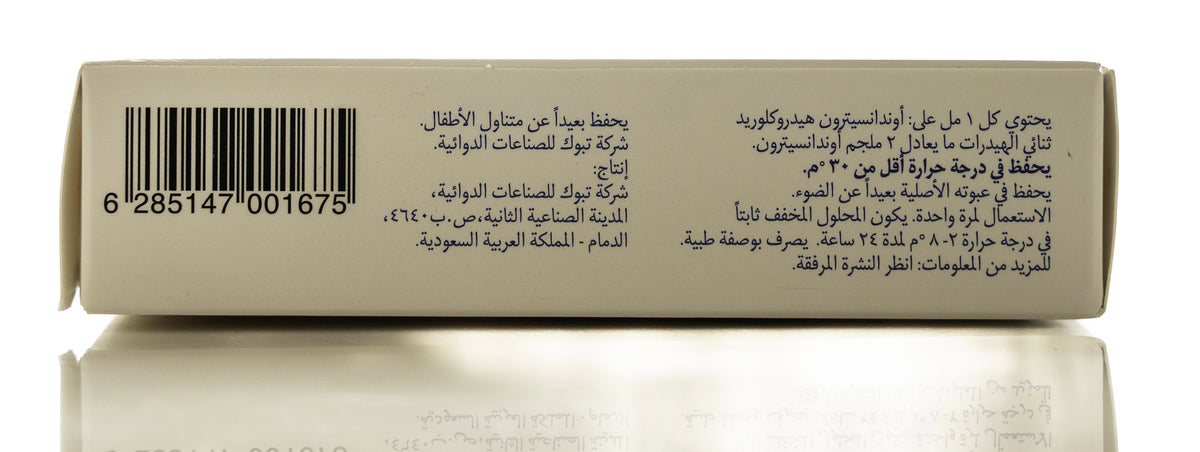 يحتوي كل ١ مل على: أوندانسيترون هيدروكلوريد
ثنائي الهيدرات ما يعادل ٢ ملجم أوندانسيترون.
يحفظ في درجة حرارة أقل من ٣٠ °م.
يحفظ في عبوته الأصلية بعيداً عن الضوء.
الاستعمال لمرة واحدة. يكون المحلول المخفف ثابتاً
في درجة حرارة ٢-٨ °م لمدة ٢٤ ساعة. يصرف بوصفة طبية.
للمزيد من المعلومات: انظر النشرة المرفقة.
يحفظ بعيداً عن متناول الأطفال.
شركة تبوك للصناعات الدوائية.
إنتاج:
شركة تبوك للصناعات الدوائية،
المدينة الصناعية الثانية،ص.ب٤٦٤٠،
الدمام - المملكة العربية السعودية.
6 285147 001675